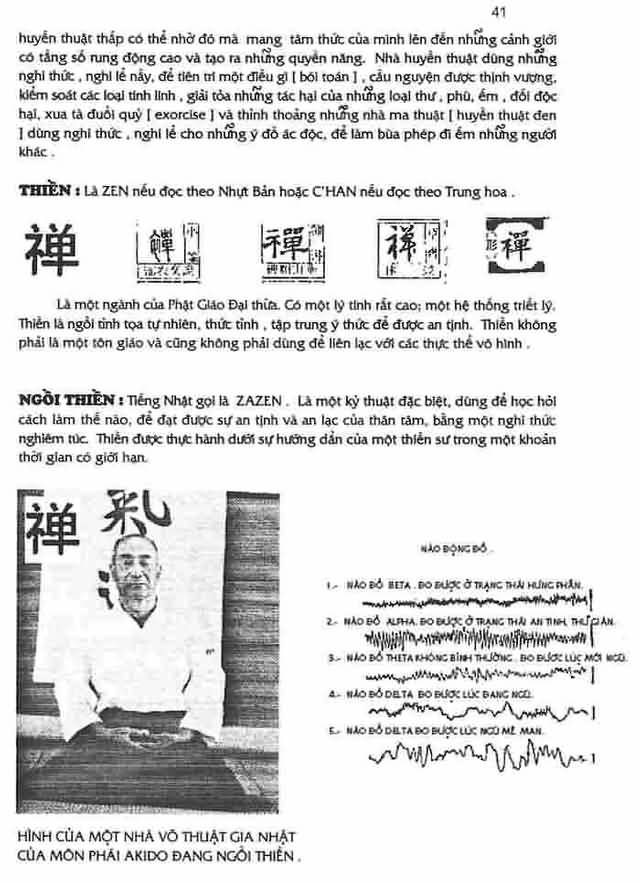 41
huyền thuật thấp có thể nhờ đó mà mang tâm thức của mình lên đến những cảnh giới
có tầng số rung động cao và tạo ra những quyền năng. Nhà huyền thuật dùng những
nghi thức , nghi lể nầy, để tiên tri một điều gì [ bói toán ] , cầu nguyện được thịnh vượng,
kiểm soát các loại tinh linh , giải tỏa những tác hại của những loại thư , phù, ếm , đối độc
hại, xua tà đuổi quỷ [ exorcise ] và thỉnh thoảng những nhà ma thuật [ huyền thuật đen
] dùng nghi thức , nghi lể cho những ý đồ ác độc, để làm bùa phép đi ếm những người
khác .
THIỀN : Là ZEN nếu đọc theo Nhựt Bản hoặc C'HAN nếu đọc theo Trung hoa .
禅 禪 禪 禅 禪
Là một ngành của Phật Giáo Đại thừa. Có một lý tính rất cao; một hệ thống triết lý.
Thiền là ngồi tỉnh tọa tự nhiên, thức tỉnh , tập trung ý thức để được an tịnh. Thiền không
phải là một tôn giáo và cũng không phải dùng để liên lạc với các thực thể vô hình .
NGỒI THIỀN : Tiếng Nhật gọi là ZAZEN . Là một kỷ thuật đặc biệt, dùng để học hỏi
cách làm thế nào, để đạt được sự an tịnh và an lạc của thân tâm, bằng một nghi thức
nghiêm túc. Thiền được thực hành dưới sự hướng dẩn của một thiền sư trong một khoản
thời gian có giới hạn.
禅
氣
NÃO ĐỘNG ĐỒ .
1.- NÃO ĐỒ BETA . ĐO ĐƯỢC Ở TRẠNG THÁI HƯNG PHẤN.
2.- NÃO ĐỒ ALPHA. ĐO ĐƯỢC Ở TRẠNG THÁI AN TỊNH, THƯ GIÃN.
3.- NÃO ĐỒ THETA KHÔNG BÌNH THƯỜNG . ĐO ĐƯỢC LÚC MỚI NGŨ.
4.- NÃO ĐỒ DELTA ĐO ĐƯỢC LÚC ĐANG NGŨ.
5.- NÃO ĐỒ DELTA ĐO ĐƯỢC LÚC NGŨ MÊ MAN.
HÌNH CỦA MỘT NHÀ VÕ THUẬT GIA NHẬT
CỦA MÔN PHÁI AKIDO ĐANG NGỒI THIỀN .